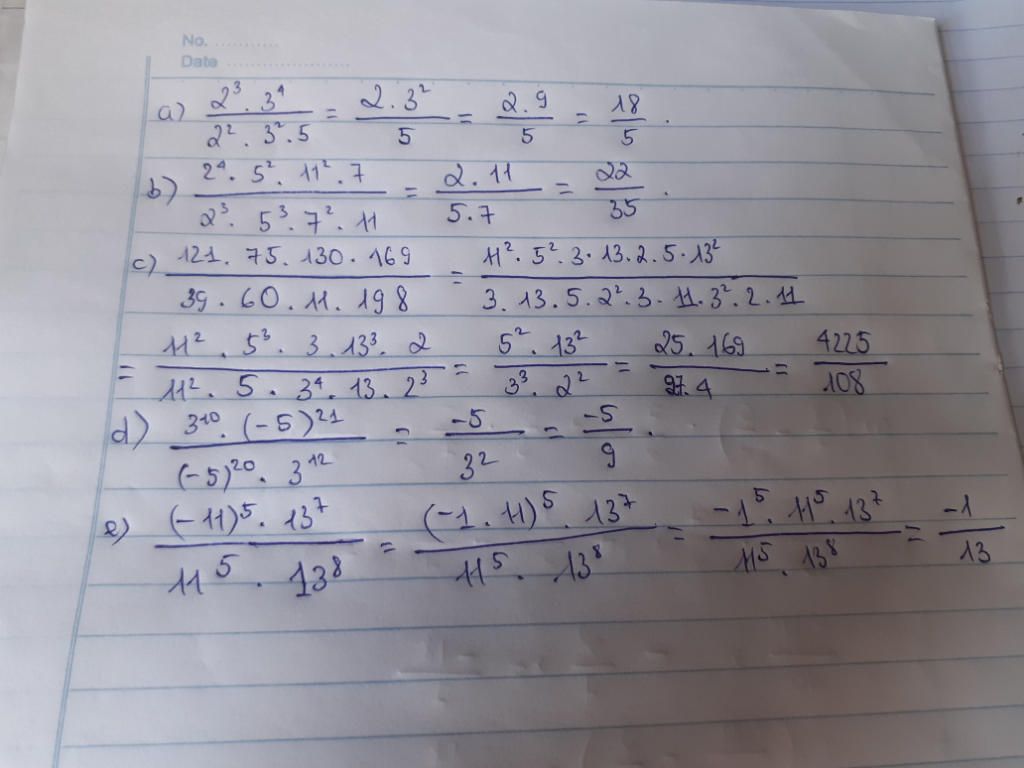 No. ...........
Date .....................
a) 2³ . 3⁴ / 2² . 3² . 5 = 2 . 3² / 5 = 2 . 9 / 5 = 18 / 5 .
b) 2⁴ . 5² . 11² . 7 / 2³ . 5³ . 7² . 11 = 2 . 11 / 5 . 7 = 22 / 35 .
c) 121 . 75 . 130 . 169 / 39 . 60 . 11 . 198 = 11² . 5² . 3 . 13 . 2 . 5 . 13² / 3 . 13 . 5 . 2² . 3 . 11 . 3² . 2 . 11
= 11² . 5³ . 3 . 13³ . 2 / 11² . 5 . 3⁴ . 13 . 2³ = 5² . 13² / 3³ . 2² = 25 . 169 / 27 . 4 = 4225 / 108
d) 3¹⁰ . (-5)²¹ / (-5)²⁰ . 3¹² = -5 / 3² = -5 / 9 .
e) (-11)⁵ . 13⁷ / 11⁵ . 13⁸ = (-1 . 11)⁵ . 13⁷ / 11⁵ . 13⁸ = -1⁵ . 11⁵ . 13⁷ / 11⁵ . 13⁸ = -1 / 13